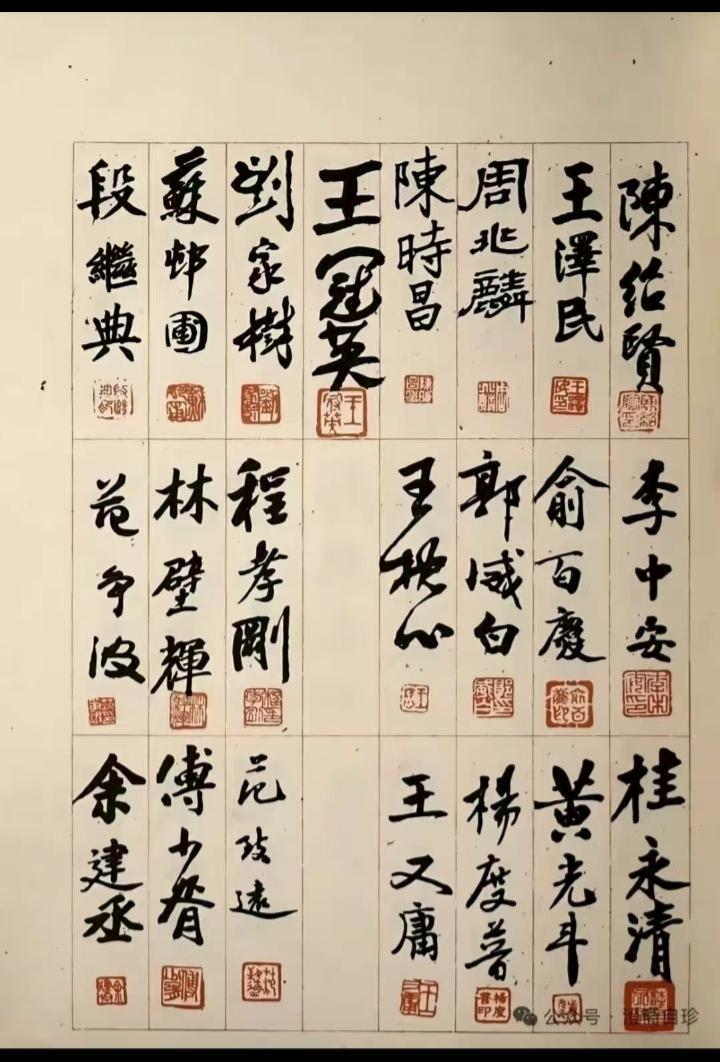 陳紹賢
李中安
桂永清
王澤民
俞百慶
黃光斗
周兆麟
郭威白
楊度普
陳時昌
王枕心
王又庸
王冠英
劉家樹
程孝剛
范致遠
蘇邨圃
林壁輝
傅少脊
段繼典
范争波
余建丞
公众号
自珍